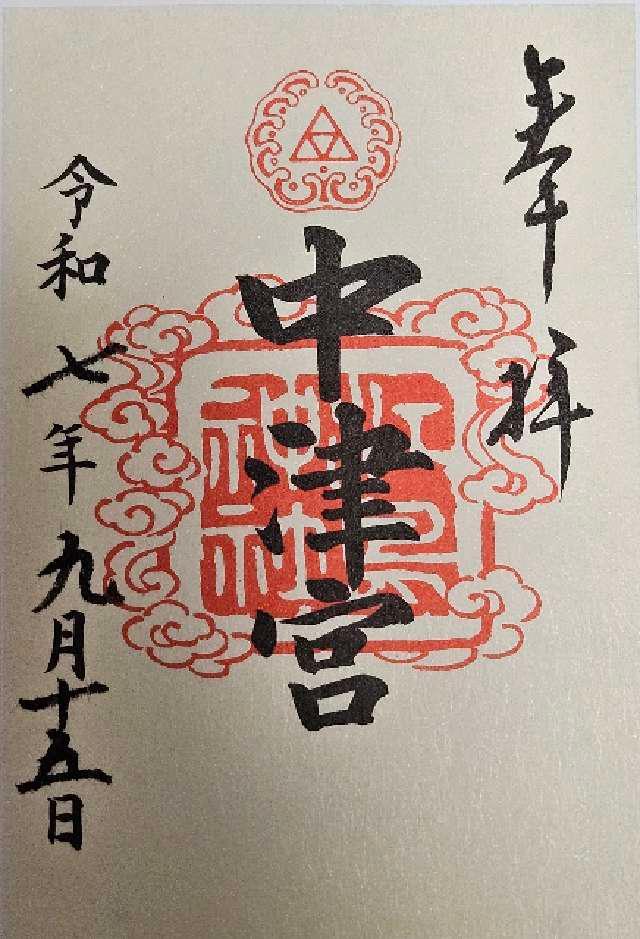 奉拝
中津宮
令和七年九月十五日